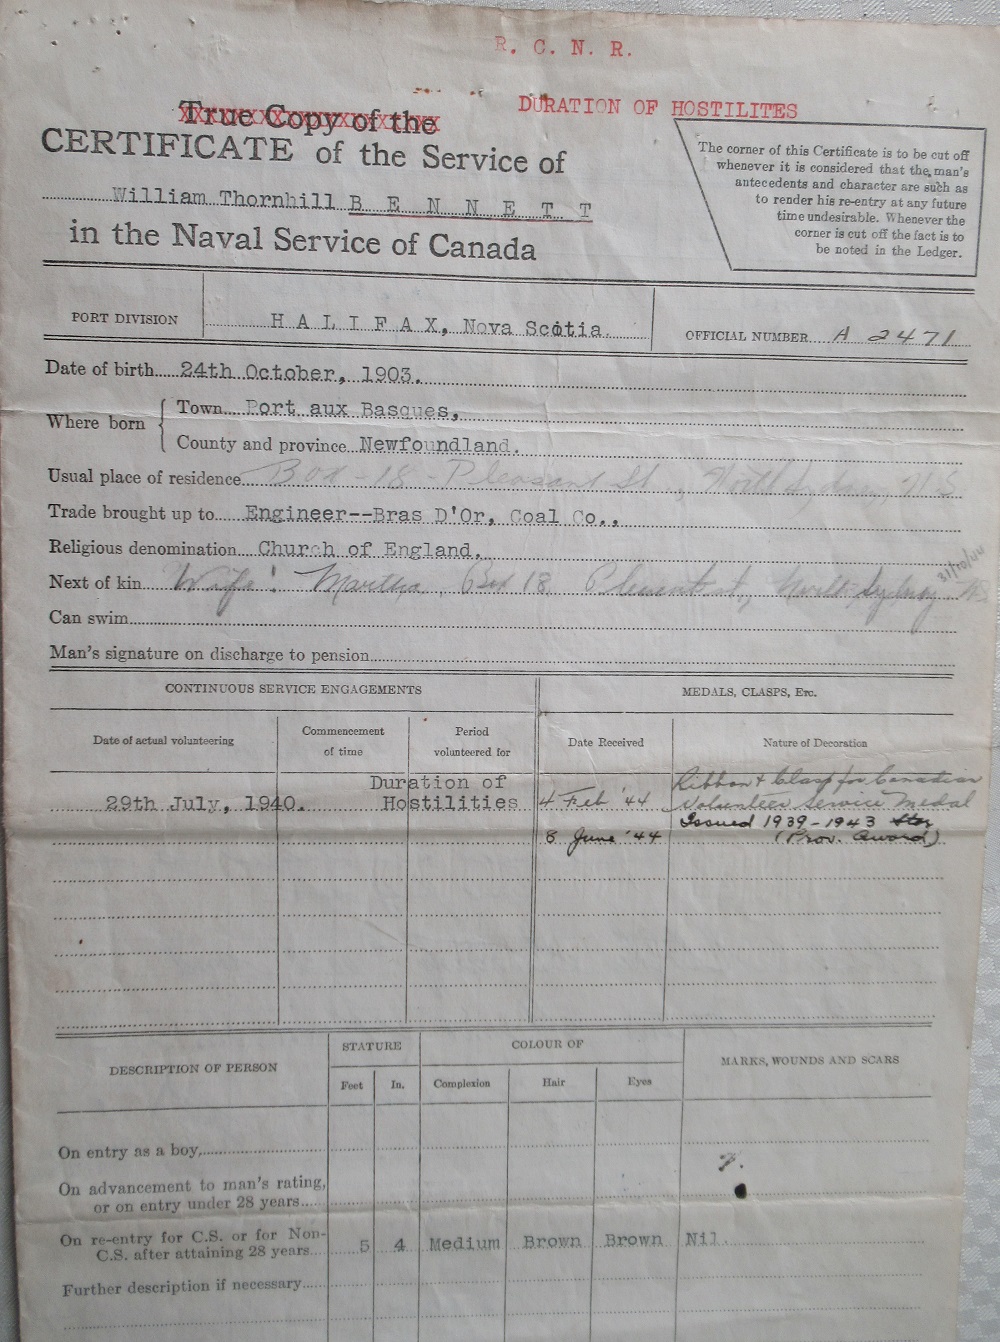 R. C. N. R.
DURATION OF HOSTILITES
True Copy of the
CERTIFICATE of the Service of
William Thornhill B E N N E T T
in the Naval Service of Canada
The corner of this Certificate is to be cut off
whenever it is considered that the man's
antecedents and character are such as
to render his re-entry at any future
time undesirable. Whenever the
corner is cut off the fact is to
be noted in the Ledger.
PORT DIVISION H A L I F A X, Nova Scotia. OFFICIAL NUMBER A 2471
Date of birth 24th October, 1903.
Where born Town Port aux Basques,
County and province Newfoundland.
Usual place of residence Box - 18 - Pleasant St, North Sydney, N.S
Trade brought up to Engineer--Bras D'Or, Coal Co.,
Religious denomination Church of England.
31/10/44
Next of kin Wife: Martha, Box 18 St, North Sydney NS
Can swim
Man's signature on discharge to pension
CONTINUOUS SERVICE ENGAGEMENTS MEDALS, CLASPS, Etc.
Date of actual volunteering Commencement of time Period volunteered for Date Received Nature of Decoration
29th July, 1940. Duration of Hostilities 4 Feb '44 Ribbon & Clasp for Canadian
Volunteer Service Medal
Issued 1939-1943 Star
8 June '44 (Prov. Award)
DESCRIPTION OF PERSON STATURE COLOUR OF MARKS, WOUNDS AND SCARS
Feet In. Complexion Hair Eyes
On entry as a boy,
On advancement to man's rating,
or on entry under 28 years
On re-entry for C.S. or for Non-
C.S. after attaining 28 years 5 4 Medium Brown Brown Nil.
Further description if necessary